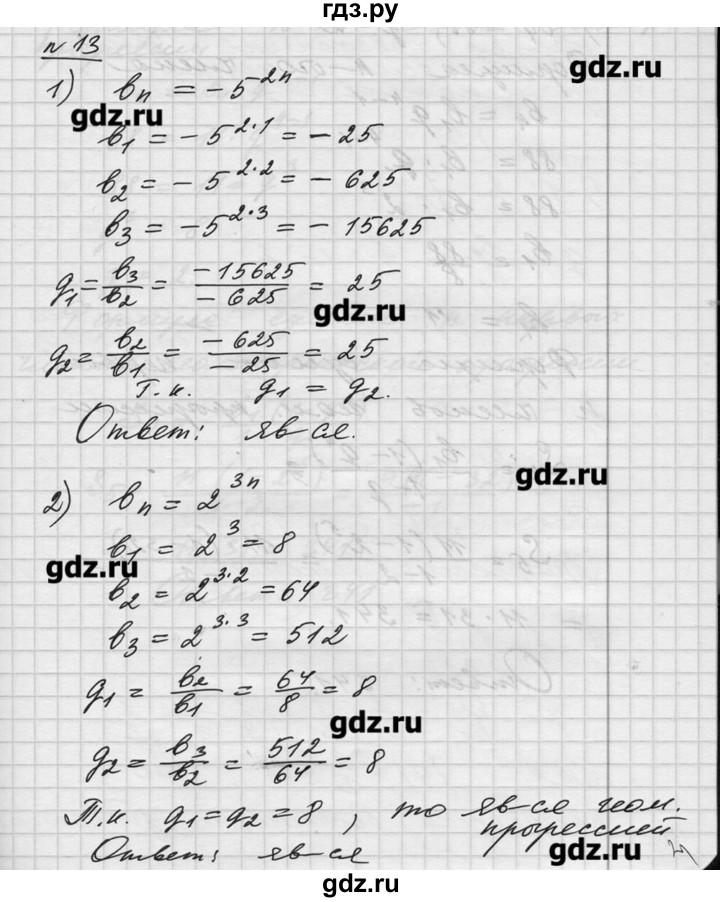 гдз.ру
№ 13
gdz.ru
1) bₙ = -5²ⁿ
gdz.ru
b₁ = -5^{2·1} = -25
b₂ = -5^{2·2} = -625
b₃ = -5^{2·3} = -15625
g₁ = b₃/b₂ = -15625/-625 = 25
gdz.ru
g₂ = b₂/b₁ = -625/-25 = 25
Т.к. g₁ = g₂.
Ответ: яв-ся.
gdz.ru
2) bₙ = 2³ⁿ
b₁ = 2³ = 8
gdz.ru
b₂ = 2^{3·2} = 64
b₃ = 2^{3·3} = 512
g₁ = b₂/b₁ = 64/8 = 8
gdz.ru
g₂ = b₃/b₂ = 512/64 = 8
Т.к. g₁ = g₂ = 8, то яв-ся геом.
прогрессией
Ответ: яв-ся
gdz.ru
gdz.ru